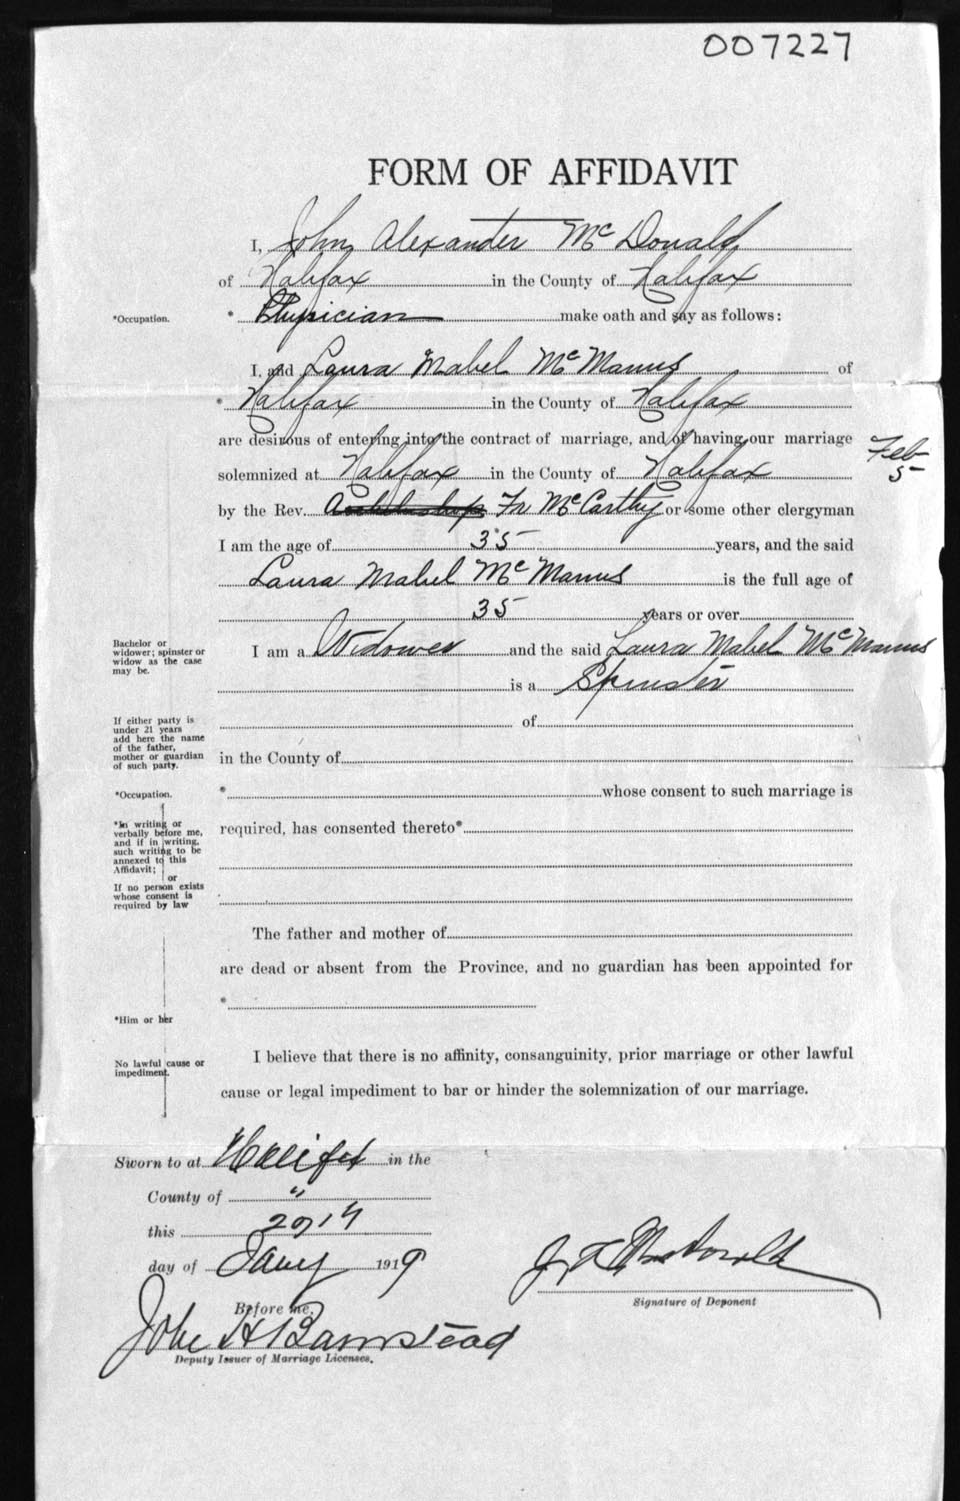 007227
FORM OF AFFIDAVIT
I, John Alexander McDonald
of Halifax in the County of Halifax
*Occupation. * Physician make oath and say as follows:
I, and Laura Mabel McManus of
* Halifax in the County of Halifax
are desirous of entering into the contract of marriage, and of having our marriage Feb
solemnized at Halifax in the County of Halifax 5
by the Rev. Archbishop Fr McCarthy or some other clergyman
I am the age of 35 years, and the said
Laura Mabel McManus is the full age of
35 years or over
Bachelor or
widower; spinster or
widow as the case
may be.
I am a Widower and the said Laura Mabel McManus
is a Spinster
If either party is
under 21 years
add here the name
of the father,
mother or guardian
of such party.
of
in the County of
*Occupation. * whose consent to such marriage is
*In writing or
verbally before me,
and if in writing,
such writing to be
annexed to this
Affidavit;
or
If no person exists
whose consent is
required by law
required, has consented thereto*
The father and mother of
are dead or absent from the Province, and no guardian has been appointed for
*
*Him or her
No lawful cause or
impediment.
I believe that there is no affinity, consanguinity, prior marriage or other lawful
cause or legal impediment to bar or hinder the solemnization of our marriage.
Sworn to at Halifax in the
County of "
this
day of Jany 1919
McDonald
Signature of Deponent
Before me,
John H Barnstead
Deputy Issuer of Marriage Licenses.